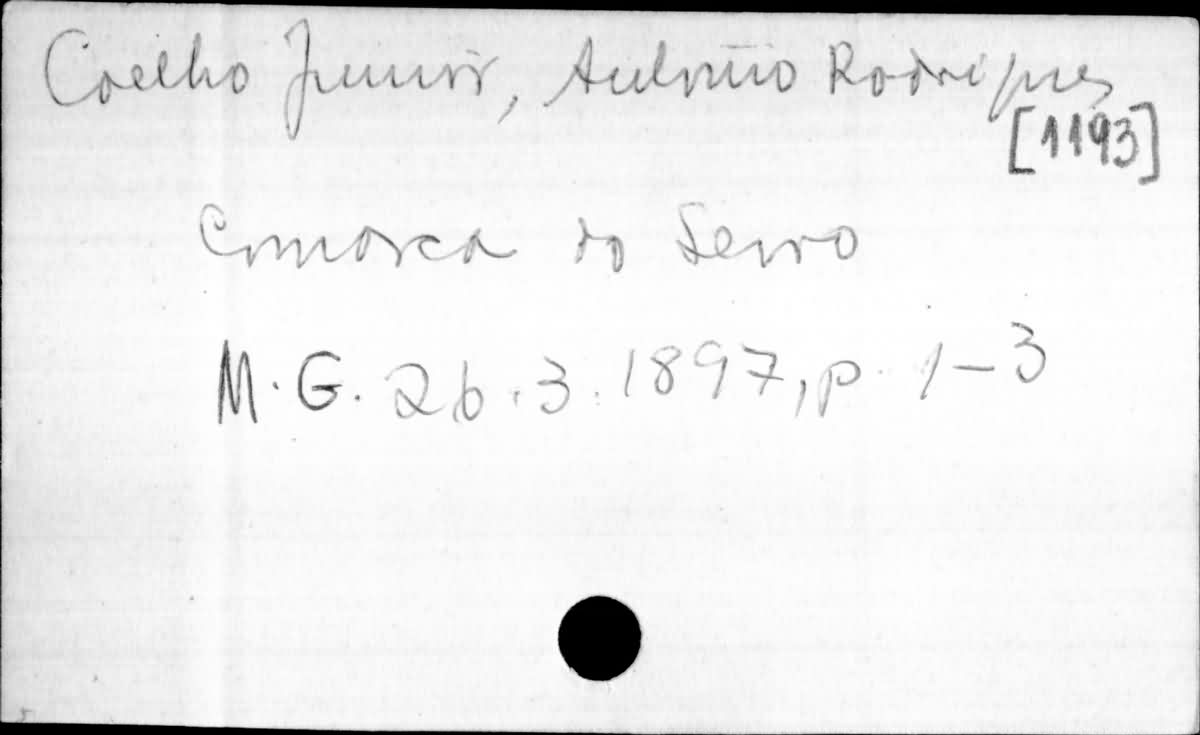 Coelho Junior, Antonio Rodrigues
[1193]
Comarca do Serro
M. G. 26.3.1897, p. 1-3